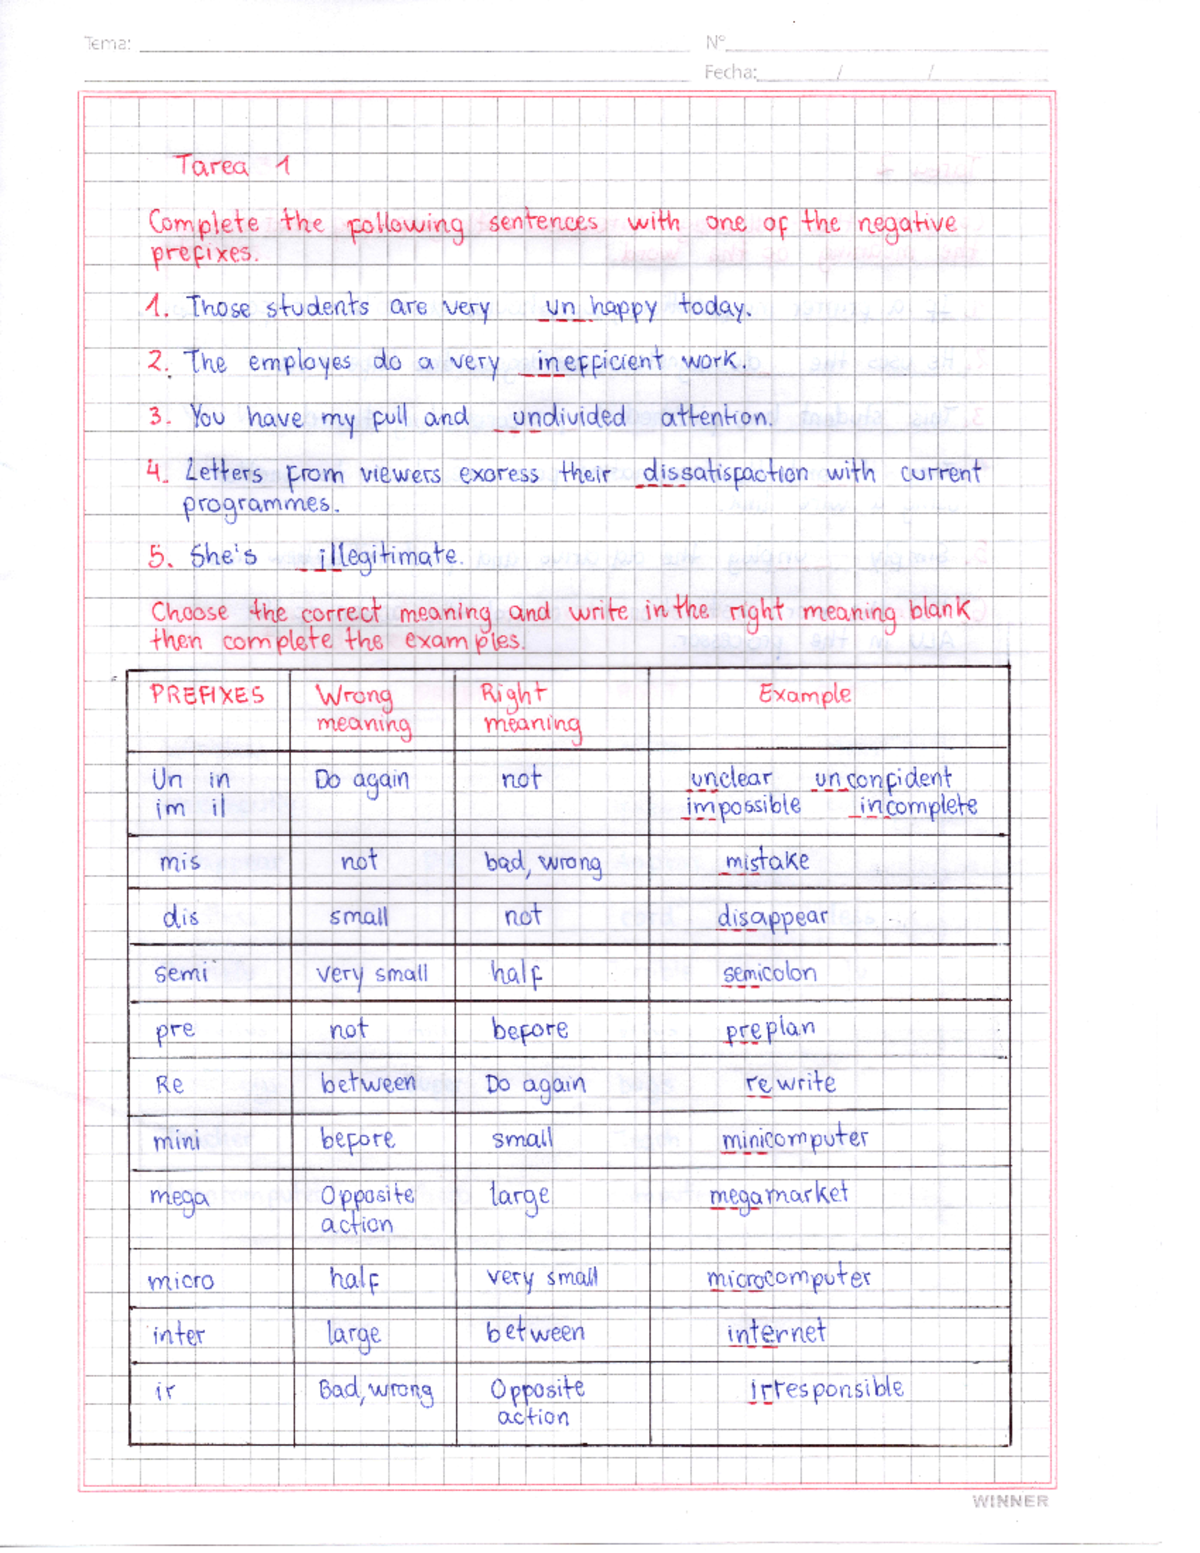 Tema: N°
Fecha: / /
Tarea 1
Complete the following sentences with one of the negative
prefixes.
1. Those students are very un happy today.
2. The employes do a very inefficient work.
3. You have my full and undivided attention.
4. Letters from viewers exoress their dissatisfaction with current
programmes.
5. She's illegitimate.
Choose the correct meaning and write in the right meaning blank
then complete the examples.
PREFIXES Wrong meaning Right meaning Example
Un in im il Do again not unclear unconfident impossible incomplete
mis not bad, wrong mistake
dis small not disappear
semi very small half semicolon
pre not before preplan
Re between Do again rewrite
mini before small minicomputer
mega Opposite action large megamarket
micro half very small microcomputer
inter large between internet
ir Bad, wrong Opposite action irresponsible
WINNER